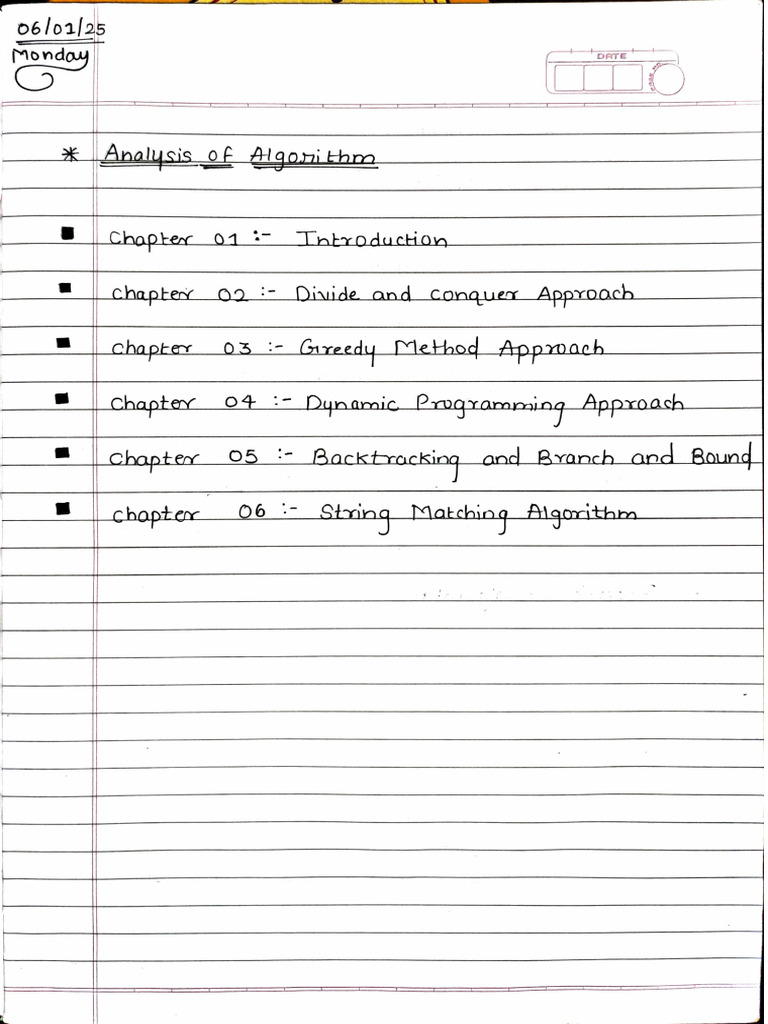 06/01/25
Monday
DATE
PAGE NO.
* Analysis of Algorithm
■ Chapter 01 :- Introduction
■ Chapter 02 :- Divide and conquer Approach
■ Chapter 03 :- Greedy Method Approach
■ Chapter 04 :- Dynamic Programming Approach
■ Chapter 05 :- Backtracking and Branch and Bound
■ chapter 06 :- String Matching Algorithm